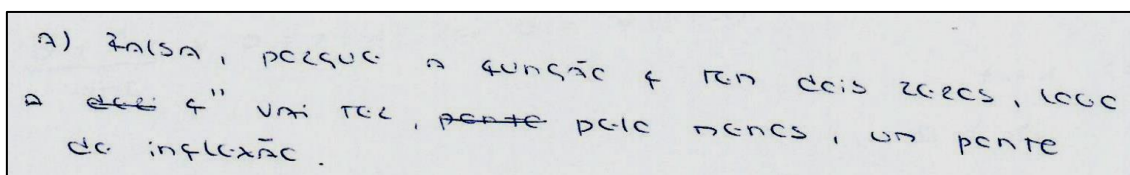 A) Falsa, porque a função f tem dois zeros, logo
a f'' vai ter, pelo menos, um ponto
de inflexão.